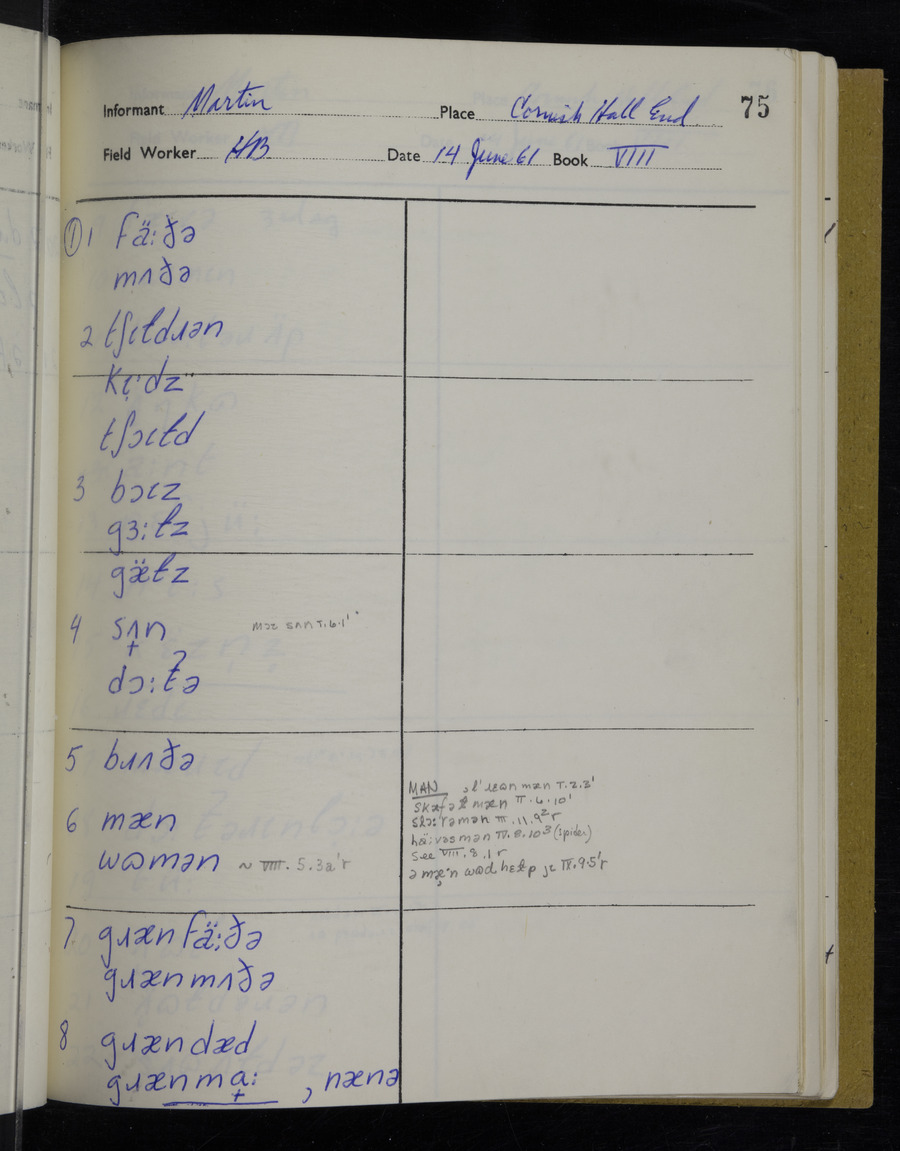 Informant Martin Place Cornish Hall End 75
Field Worker HB Date 14 June 61 Book VIII
① 1 fä:ðə
mʌðə
2 tʃɩɫdɹən
kɩ̣·dz
tʃɔɩɫd
3 bɔɩz
gɜ:ɫz
gæ̈ɫz
4 sʌ̟n mɔɩ sʌn V.6.1'
dɔ:ʔə
5 bɹʌðə
6 mæn
wɷmən ~ VIII.5.3a'r
MAN
skæfəɫ mæn II.6.10'
slɔ:təmən III.11.9²r
hä:vəsmən IV.8.10³ (spider)
see VIII.8.1r
ə mæ·n wɷd hɛɫp jɩ IX.9.5'r
7 gɹæn fä:ðə
gɹæn mʌðə
8 gɹæn dæd
gɹæn mɑ̟: , nænə